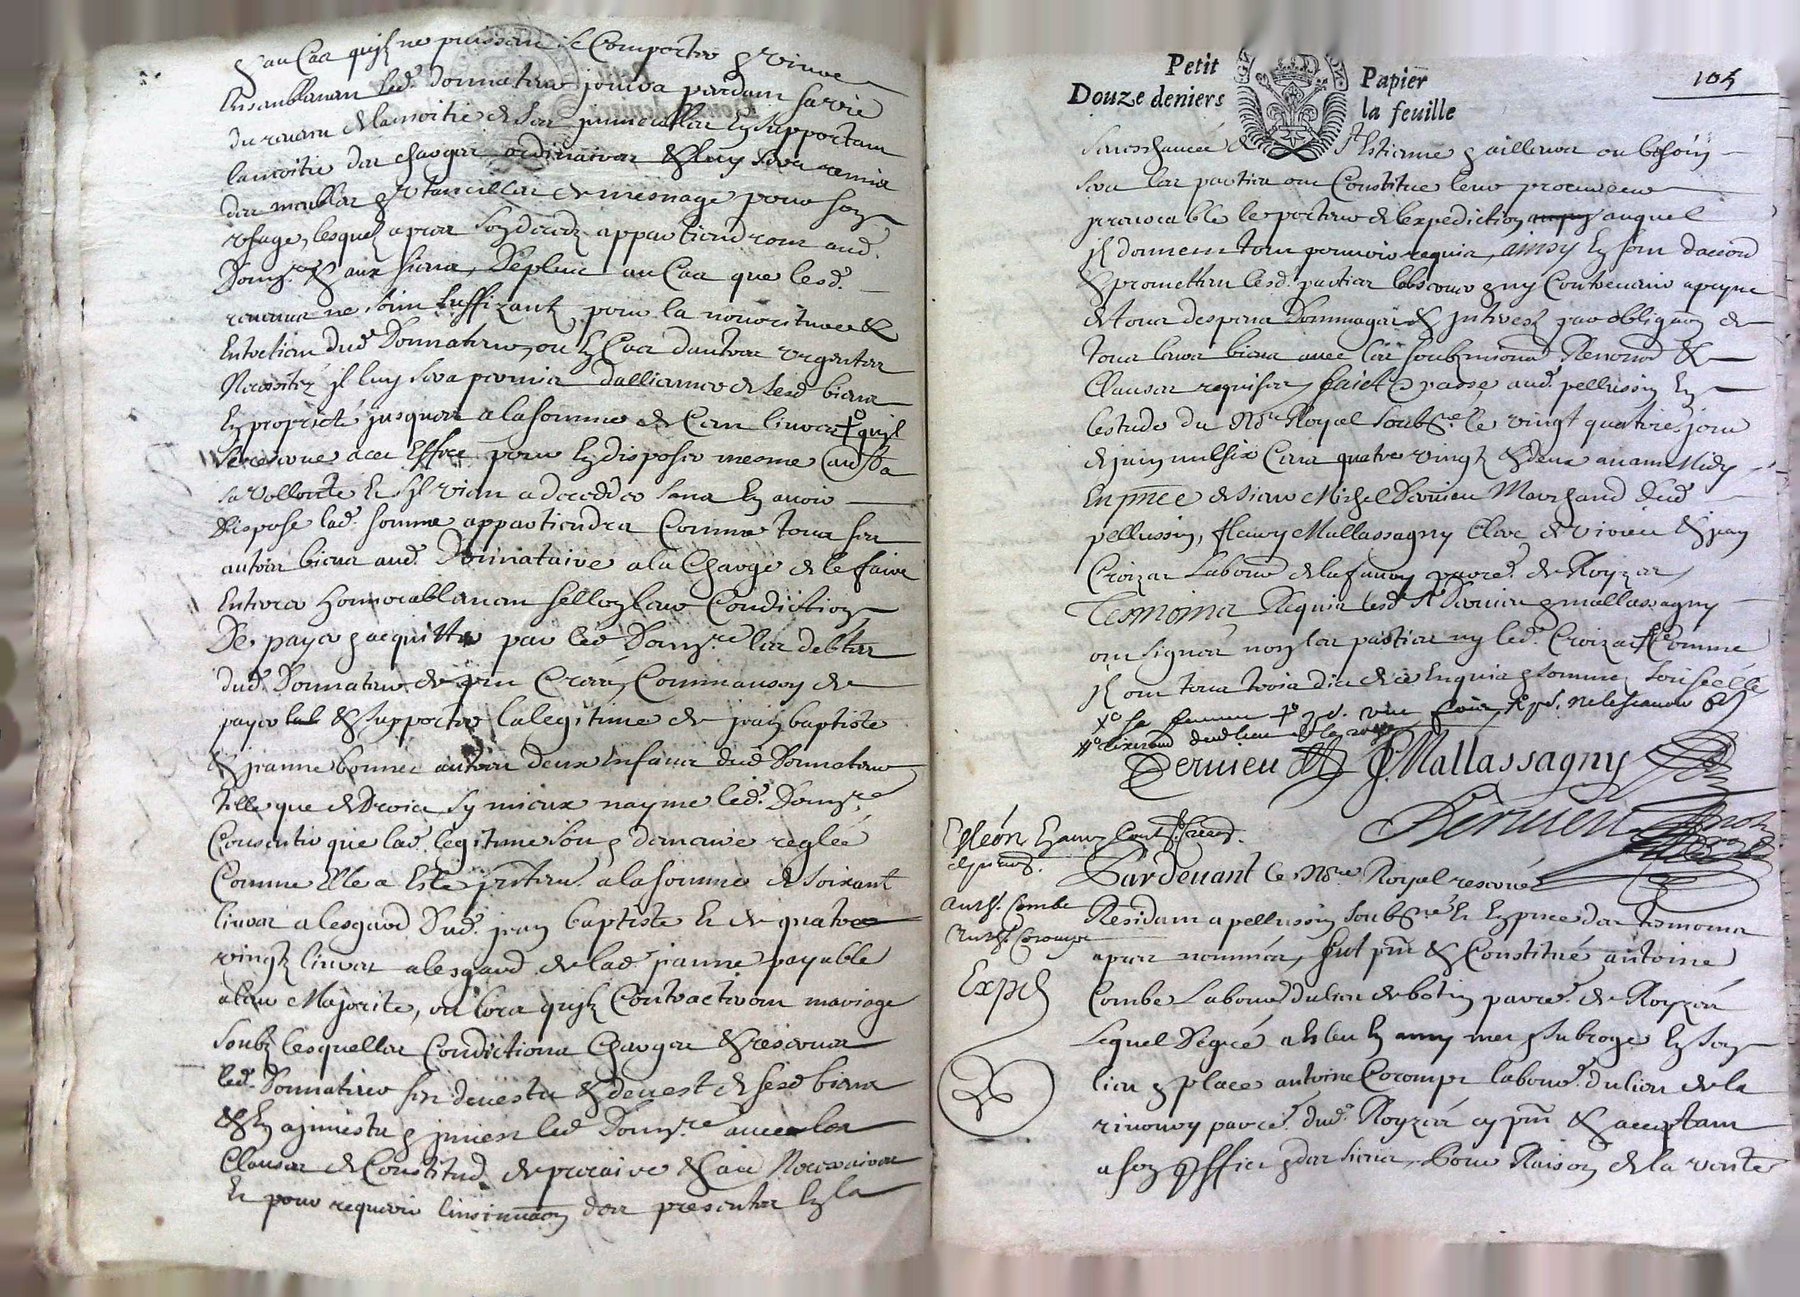 & au Cas quilz ne puissent se Comporter & vivre
Ensemblement led. donnateur jouira pendant sa vie
du revenu de la moitie de ses immeubles En supportant
la moitie des charges ordinaires & luy sera remis
des meubles & utancilles de mesnage pour son
usage, lesquelz apres son deces appartiendront aud.
Donre. & aux siens, De plus au Cas que lesd.
revenus ne soint suffizant pour la nourriture &
Entretien dud. Donnateur, ou En Cas dautres urgentes
Necessités jl luy sera permis dalliener de sesd. biens
En proprieté jusques a la somme de Cent livres quil
se reserve a cet Effect pour En disposer mesme a
sa vollonté Et sil vient a deceder sans En avoir
Dispose lad. somme appartiendra Comme tous ses
autres biens aud. Donnataire a la Charge de le faire
Enterrer honnorablement sellon leur Condiction
De payer & acquitter par led. Donre. les debtes
dud. Donnateur de Commansson de
payer & supporter la legitime de jean baptiste
& jeanne bonnet autres deux Enfans dud. Donnateur
telle que de Droict sy mieux nayme led. Donre.
Consentir que lad. legitime soit & demeure reglée
Comme Elle a Esté a la somme de soixante
livres a lesgard Dud. jean baptiste Et de quatre
vingtz livres a lesgard de lad. jeanne payable
a leur Majorité, ou lors quilz Contracteront mariage
soubz lesquelles Condictions Charges & reserves
led. Donnateur sest devestu & devest de sesd. biens
& En a jnvestu & jnvest led. Donre. avec les
Clauses de Constitud. de precaire & aues Necessaires
Et pour requerir linsinuaon des presentes En la
Petit Papier
Douze deniers la feuille
105
Seneschaucée de St Estienne & ailleurs ou besoin
sera les parties ont Constitué leur procureur
jrrevocable le porteur de lexpedition auquel
jlz donnent tout pouvoir requis, ainsy En sont daccord
& promettent lesd. parties lobserver & ny Contrevenir a peyne
de tous despens Dommages & jnterestz par obligaon de
tous leurs biens avec les soubzmions. Renonons. &
Clauses requises, faict & passé, aud. pellussin En
lestude du Nre Royal soubzné. le vingt quatries. jour
de juin mil six Cens quatre vingtz & deux avant Midy
En pnce de sieur Michel Dervieu Marchand dud.
pellussin, fleury Mallassagny Clerc de virieu & jean
Croizat Laboure de la parce. de Royzet,
Tesmoins Requis lesd. Srs Dervieu & mallassagny
ont signé non les parties ny led. Croizat Comme
jlz ont tous trois dit de ce Enquis & sommes soit seellé
Dervieu J. Mallassagny
Dervieu
antt. Combe
antt. Corompt
Expé
Pardevant le Nre Royal reservé
Residant a pellussin soubzné Et En pnce des tesmoins
apres nommés, fut pnt & Constitué antoine
Combe Laboure. du lieu de botin parce. de Royzet
Lequel De gré a Esleu En amy mis & subrogé En son
lieu & place antoine Corompt laboure. du lieu de la
rivoury parce. dud. Royzet cy pnt & acceptant
a son peffict & des siens, Pour Raison de la vente